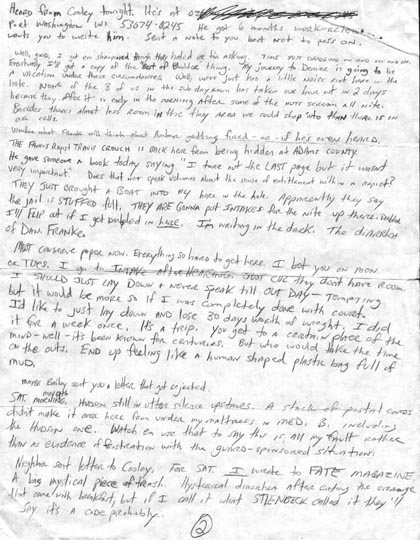 Heard from Cooley tonight. He's at
Port Washington WI 53074-0245 He got 6 months work-release
wants you to write him. Sent a note to you but not to pass on.
Well, and, I got em sharpened though they hated on for asking. Time just dragging on and on and on.
Eventually I'll get a copy of the "Best of Buddies" thing. My journey to Denver is going to be
a vacation under those circumstances. Well, we've just had a little noise out here in the
hole. None of the 8 of us in the subdayroom has taken our hour out in 2 days
because they offer it so early in the morning after some of the nuts scream all nite.
Besides there's about less room in the tiny area we could step into than there is in
our cells.
Wonder what Frankie will think about Ambur getting fired - or - if he's even heard.
The famous rapist Travis Crouch is back here from being hidden at Adams County.
He gave someone a book today saying "I tore out the LAST page but it wasn't
very important." Does that not speak volumes about the sense of entitlement within a rapist?
They just brought a BOAT into my here in the hole. Apparently they say
the jail is STUFFED full. They are gonna put INTAKES for the nite up there.
I'll flip out if I get doubled in here. I'm writing in the dark. The diaries
of Dan. Franke.
Must conserve paper now. Everything so hard to get here. I bet you on mon
or tues. I go to INTAKE after hearing. Just cuz they dont have room.
I should just lay down & never speak till out day - tempting
but it would be more so if I was completely done with court.
I'd like to just lay down and lose 30 days worth of weight. I did
it for a week once. It's a trip. You get to a certain place of the
mind - well - it's been known for centuries. But who would take the time
on the outs. End up feeling like a human shaped plastic bag full of
mud.
maybe Emily sent you a letter that got rejected.
Sat. morning. Hudson still in utter silence upstairs. A stack of postal cards
didnt make it over here from under my mattress in MED. B. including
the Hudson one. Watch em use that to say this is all my fault rather
than as evidence of frustration with the guard-sponsored situation.
Neighbor sent letter to Cooley. For SAT. I wrote to FATE MAGAZINE
A big mystical piece of trash. Hysterical diarrhea after eating the orange
that came with breakfast, but if I call it what STIENBECK called it they'll
say it's a code probably.
2